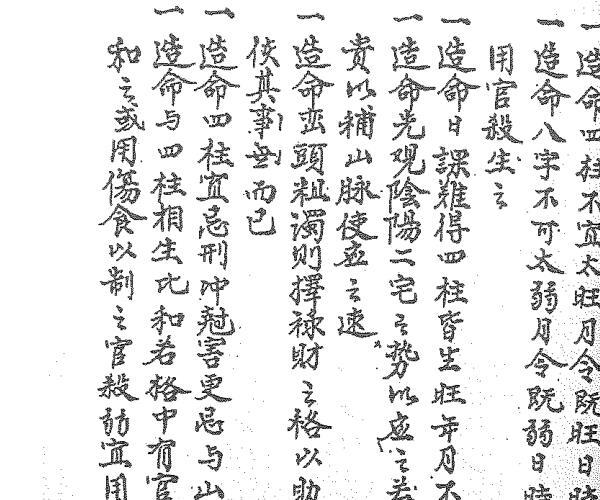 一造命四柱不宜太旺月令既旺日時
一造命八字不可太弱月令既弱日時
用官殺生之
一造命日課難得四柱皆生旺年月不
一造命先观陰陽二宅之势以应之若
貴以補山脉使应之速
一造命峦頭粗濁则擇禄財之格以助
佼其事业而已
一造命四柱宜忌刑冲尅害更忌与山
一造命与四柱相生比和若格中有官
和之或用傷食以制之官殺弱宜用